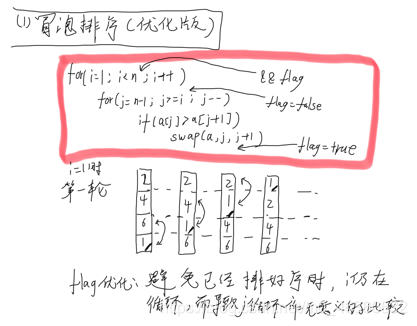 (1) 冒泡排序(优化版)
for(i=1; i<n; i++)
&& flag
for(j=n-1; j>=i; j--)
flag=false
if(a[j]>a[j+1])
swap(a,j,j+1)
flag=true
i=1时
第一轮
2 2 2 1
4 4 1 2
6 1 4 4
1 6 6 6
flag优化: 避免已经排好序时,i仍在
循环,而导致j循环作无意义的比较